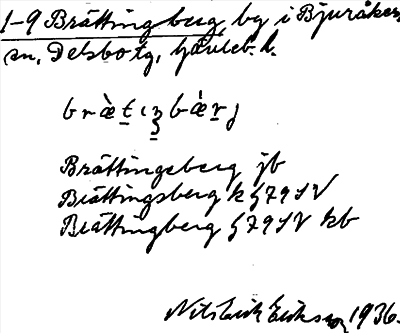 1-9 Brättingberg, by i Bjuråkers
sn, Delsbo tg, Gävleb. l.
bràt̲ɩŋ̲bær̲j
Brättingsberg jb
Brättingsberg k §79 SV
Brättingberg §79 SV kb
Nils Erik Eriksson 1936.